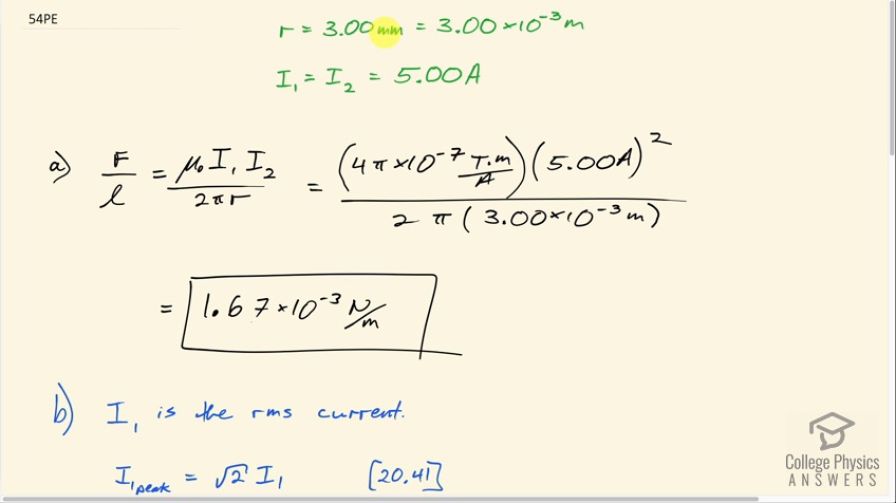 54PE
r = 3.00 mm = 3.00 × 10⁻³ m
I₁ = I₂ = 5.00 A
a) F/l = μ₀ I₁ I₂ / 2πr = (4π × 10⁻⁷ T·m/A)(5.00 A)² / 2π(3.00 × 10⁻³ m)
= 1.67 × 10⁻³ N/m
b) I₁ is the rms current.
I₁ peak = √2 I₁ [20.41]
College Physics
ANSWERS